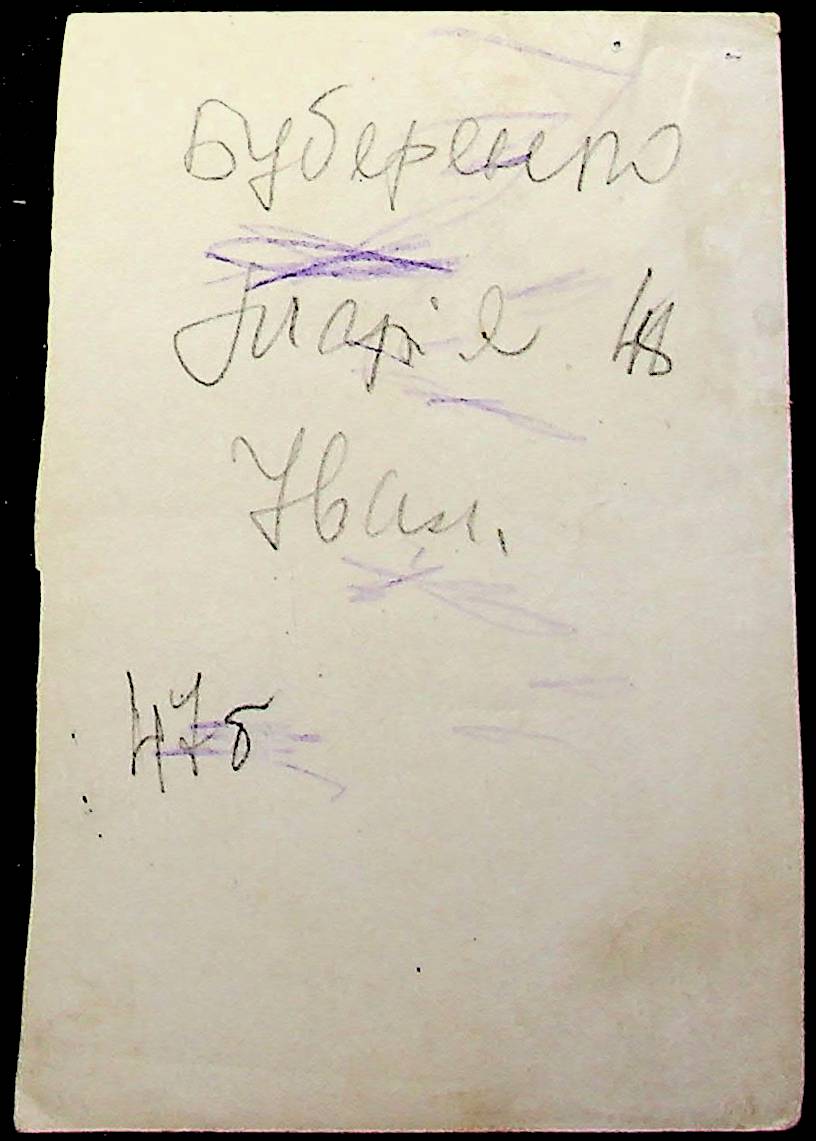 Буберенко
Марія 48
Иван.
475